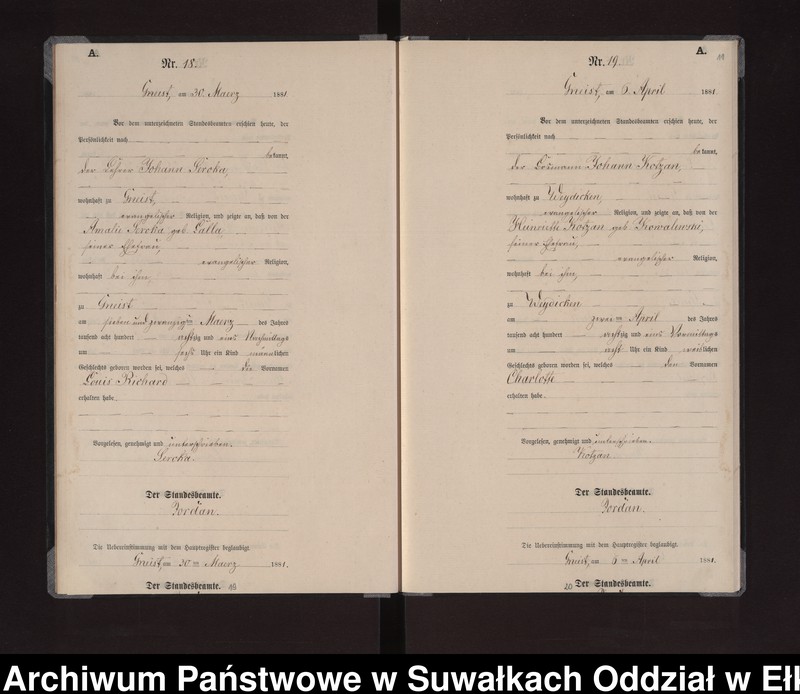 A.
Nr. 18.
Gneist, am 30. Maerz 1881.
Vor dem unterzeichneten Standesbeamten erschien heute, der
Persönlichkeit nach
bekannt,
der Lehrer Johann Seroka,
wohnhaft zu Gneist,
evangelischer Religion, und zeigte an, daß von der
Amalie Seroka geb. Galla
seiner Ehefrau,
evangelischer Religion,
wohnhaft bei ihm,
zu Gneist
am sieben und zwanzigten Maerz des Jahres
tausend acht hundert achtzig und eins Nachmittags
um sechs Uhr ein Kind männlichen
Geschlechts geboren worden sei, welches die Vornamen
Louis Richard
erhalten habe.
Vorgelesen, genehmigt und unterschrieben.
Seroka.
Der Standesbeamte.
Jordan.
Die Uebereinstimmung mit dem Hauptregister beglaubigt
Gneist, am 30 ten Maerz 1881.
Der Standesbeamte.
A.
Nr. 19.
Gneist, am 6. April 1881.
Vor dem unterzeichneten Standesbeamten erschien heute, der
Persönlichkeit nach
bekannt,
der Losmann Johann Kotzan,
wohnhaft zu Weydicken,
evangelischer Religion, und zeigte an, daß von der
Heinriette Kotzan geb. Kowalewski,
seiner Ehefrau,
evangelischer Religion,
wohnhaft bei ihm,
zu Weydicken
am zwei ten April des Jahres
tausend acht hundert achtzig und eins Vormittags
um acht Uhr ein Kind weiblichen
Geschlechts geboren worden sei, welches den Vornamen
Charlotte
erhalten habe.
Vorgelesen, genehmigt und unterschrieben.
Kotzan
Der Standesbeamte.
Jordan.
Die Uebereinstimmung mit dem Hauptregister beglaubigt.
Gneist, am 6 ten April 1881.
20 Der Standesbeamte.
Archiwum Państwowe w Suwałkach Oddział w Ełk